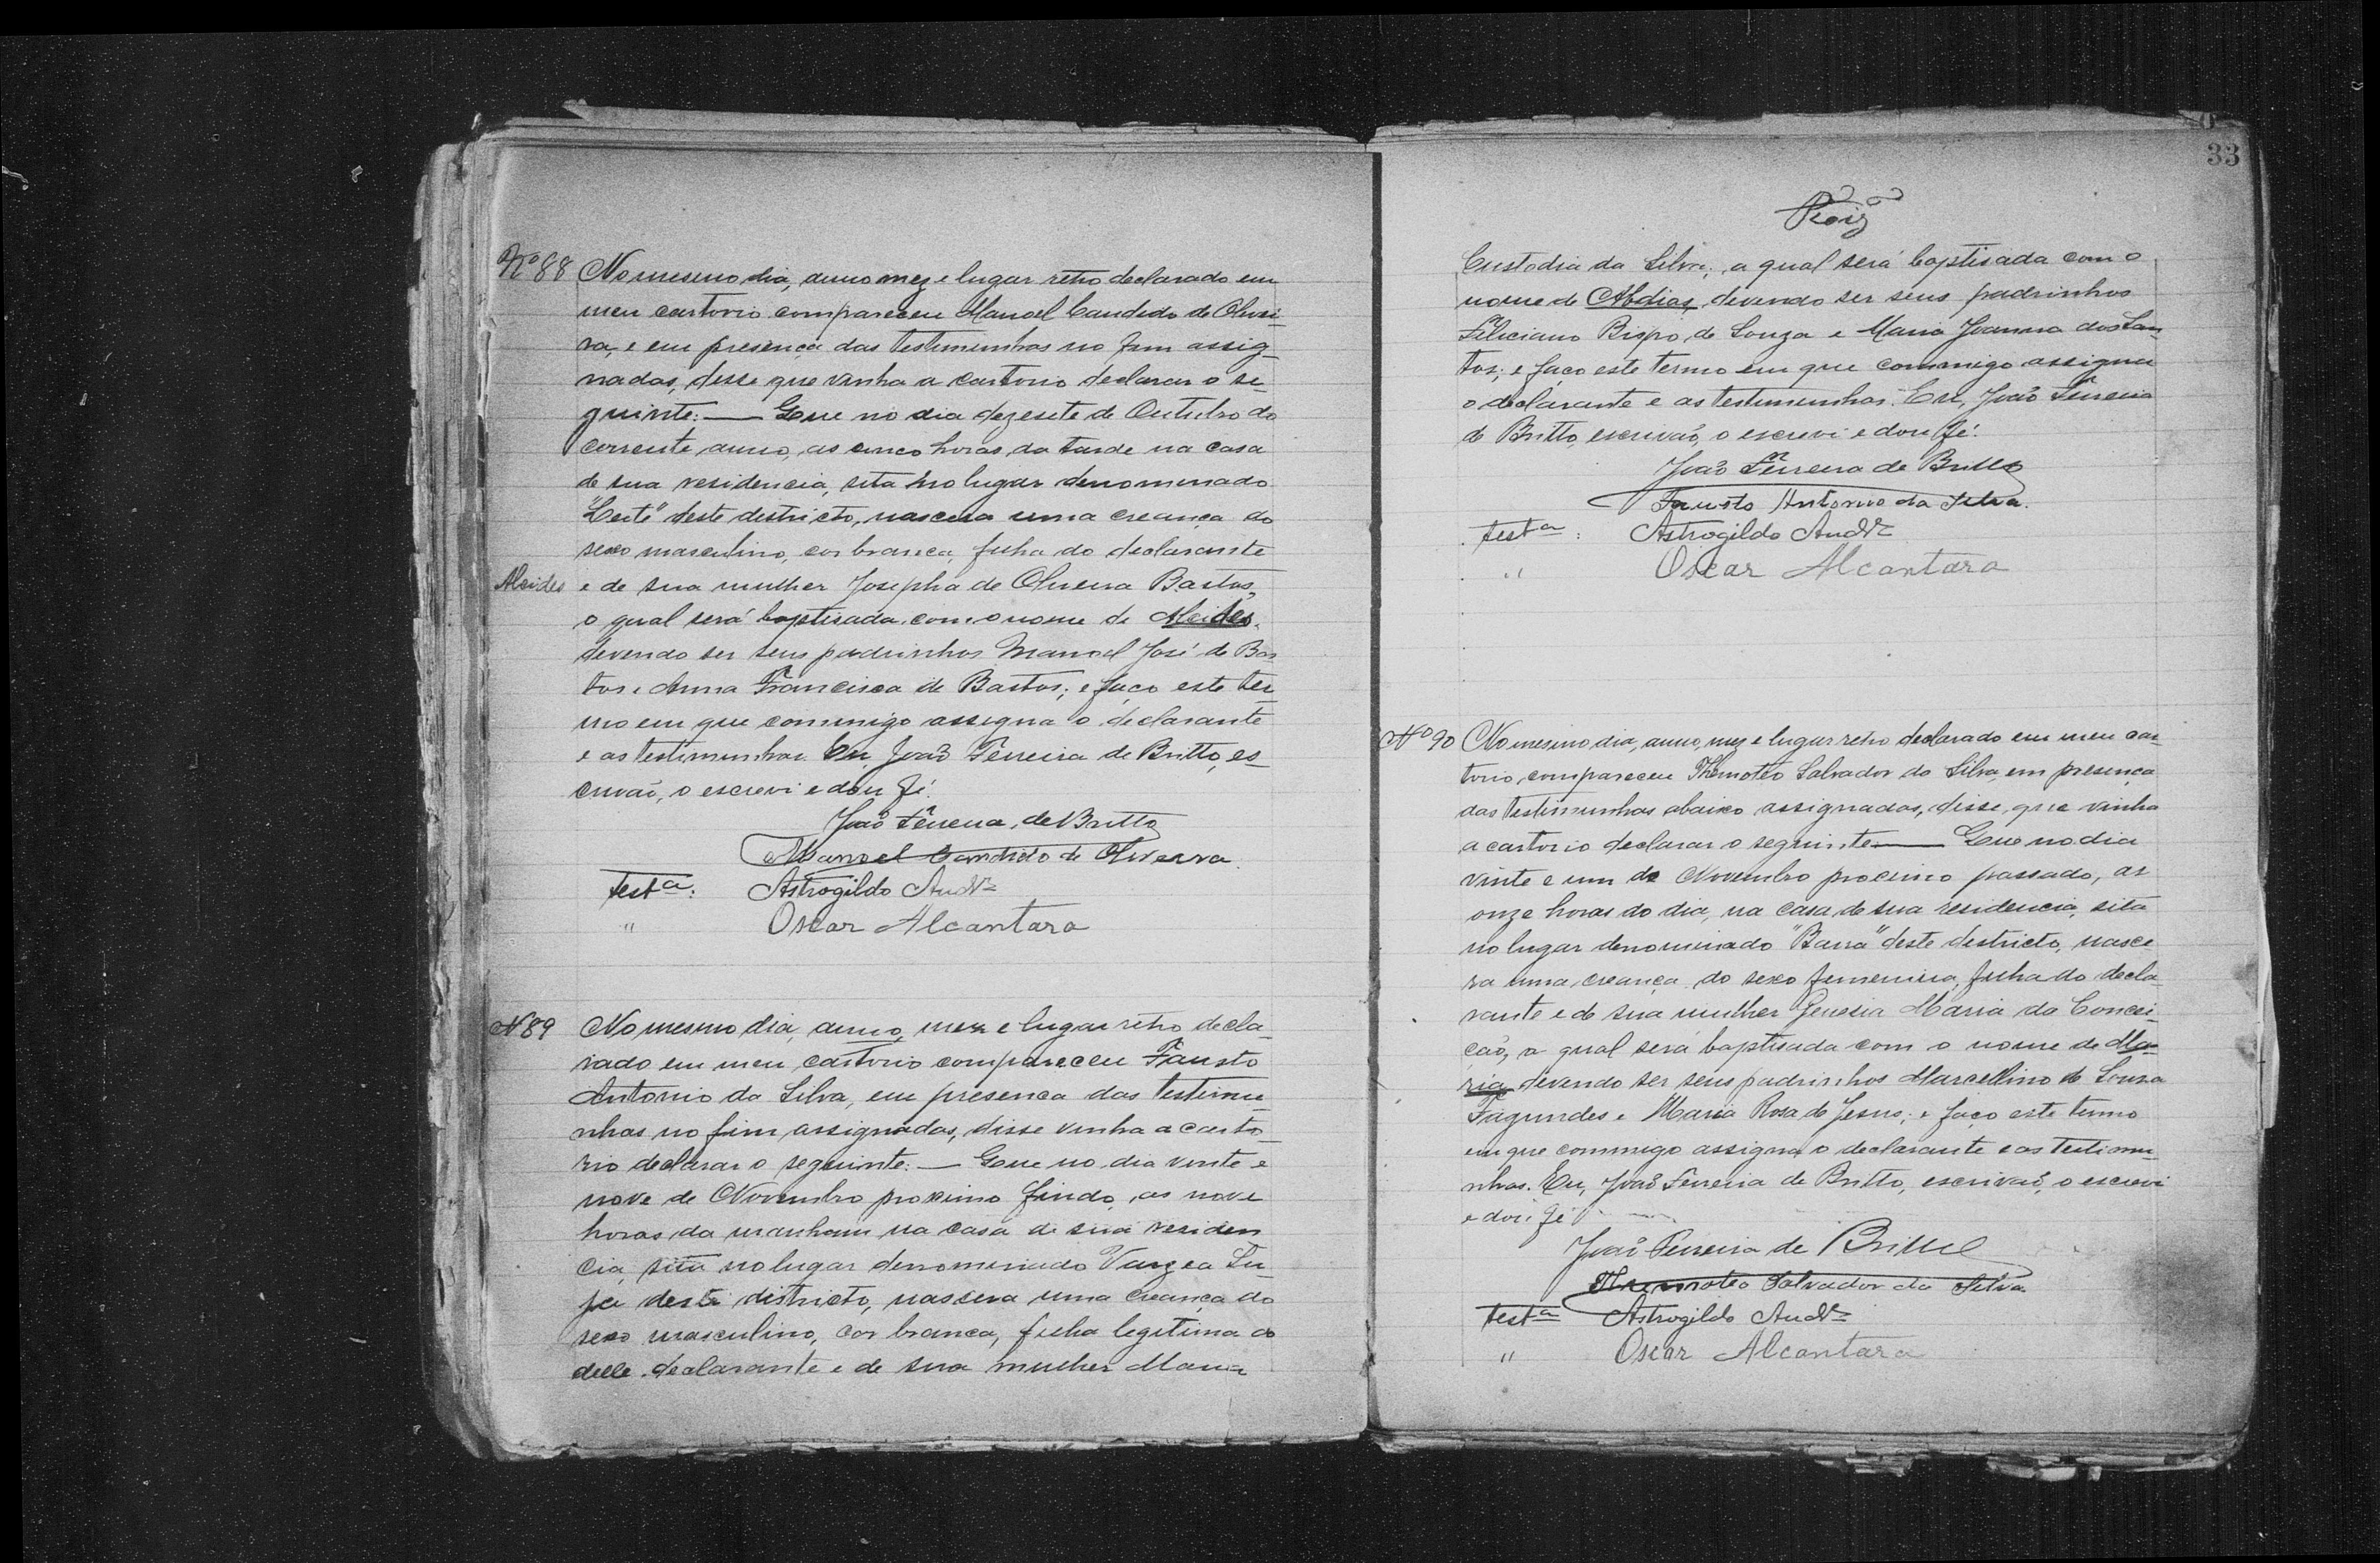 Nº 88 No mesmo dia, anno mez e lugar retro declarado em
meu cartorio compareceu Manoel Candido de Olivei-
ra, e em presença das testemunhas no fim assig-
nadas, disse que vinha a cartorio declarar o se-
guinte: — Que no dia dezesete de Outubro do
corrente anno, as cinco horas da tarde na casa
de sua residencia, sita no lugar denominado
deste districto, nascera uma creança do
sexo masculino, cor branca, filha do declarante
Alcides e de sua mulher Josepha de Oliveira Bastos,
o qual será baptisada com o nome de Alcides,
devendo ser seus padrinhos Manoel José de Bas
tos e Anna Francisca de Bastos; e faço este ter-
mo em que commigo assigna o declarante
e as testimunhas. Eu, João Ferreira de Britto, es-
crivaõ, o escrevi e dou fé.
João Ferreira de Britto
Manoel Candido de Oliveira
testa: Astrogildo
" Oscar Alcantara
Nº 89 No mesmo dia, anno, mez e lugar retro decla-
rado em meu cartorio compareceu Fausto
Antonio da Silva, em presença das testimu-
nhas no fim assignadas, disse vinha a carto-
rio declarar o seguinte: — Que no dia vinte e
nove de Novembro proximo findo, as nove
horas da manham na casa de sua residen
cia, sita no lugar denominado Varzea Su-
ja deste districto, nascera uma creança do
sexo masculino, cor branca, filha legitima do
delle declarante e de sua mulher Maria
33
Custodia da Silva; a qual será baptisada com o
nome de Abdias, devendo ser seus padrinhos
Feliciano Bispo de Souza e Maria Joanna dos San-
tos; e faço este termo em que commigo assigna
o declarante e as testimunhas. Eu, João Ferreira
de Britto, escrivaõ, o escrevi e dou fé.
João Ferreira de Britto
Fausto Antonio da Silva.
testa: Astrogildo
" Oscar Alcantara
Nº 90 No mesmo dia, anno, mez e lugar retro declarado em meu car-
torio, compareceu Themoteo Salvador da Silva, em presença
das testimunhas abaixo assignadas, disse, que vinha
a cartorio declarar o seguinte — Que no dia
vinte e um de Novembro proximo passado, as
onze horas do dia, na casa de sua residencia, sita
no lugar denominado "Barra" deste districto, nasce-
ra uma creança do sexo femenino, filha do decla-
rante e de sua mulher Genesia Maria da Concei-
ção, a qual será baptisada com o nome de Ma-
ria, devendo ser seus padrinhos Marcellino de Souza
Fagundes e Maria Rosa de Jesus; e faço este termo
em que commigo assigna o declarante e as testimu-
nhas. Eu, João Ferreira de Britto, escrivaõ, o escrevi
e dou fé
João Ferreira de Britto
Themoteo Salvador da Silva
testa Astrogildo
" Oscar Alcantara